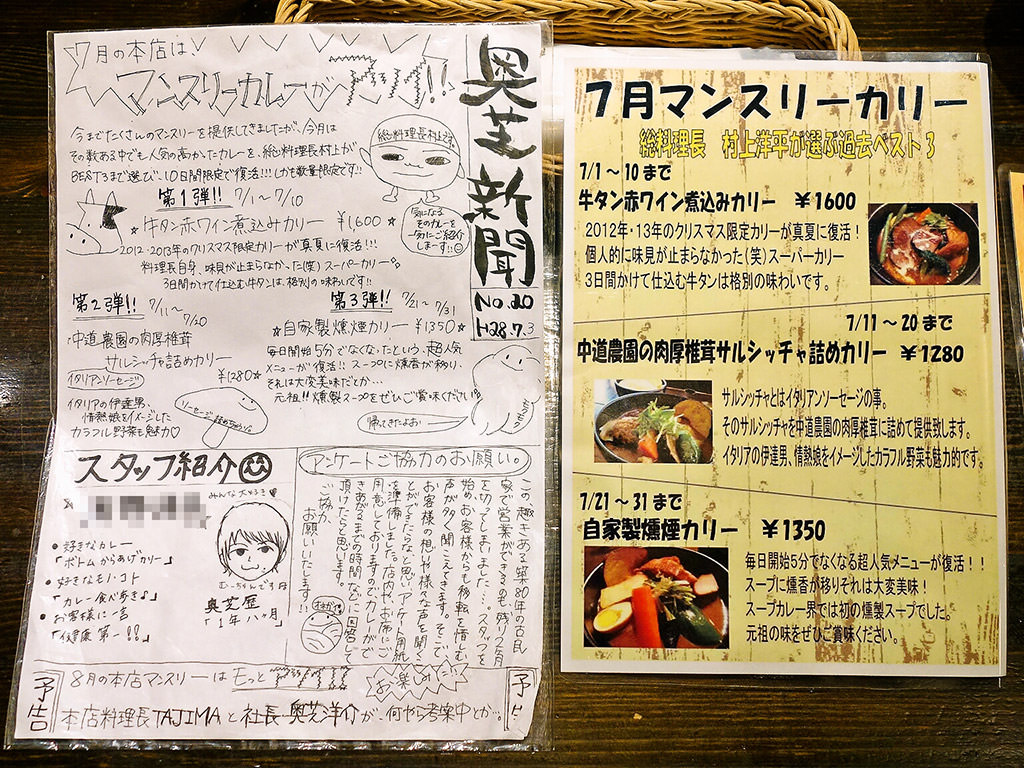 7月の本店は、
マンスリーカレーが
今までたくさんのマンスリーを提供してきましたが、今月は
その数ある中でも人気の高かったカレーを、総料理長村上が
BEST3まで選び、10日間限定で復活!!!しかも数量限定です!!
総料理長村上
気になる
そのカレーを
ご紹介
しまーす!!
第1弾!! 7/1〜7/10
牛タン赤ワイン煮込みカリー ¥1600
2012・2013年のクリスマス限定カリーが真夏に復活!!!
料理長自身、味見が止まらなかった(笑)スーパーカリー
3日間かけて仕込む牛タンは、格別の味わいです!!
第2弾!! 7/11〜7/20
中道農園の肉厚椎茸
サルシッチャ詰めカリー
¥1280
イタリアンソーセージ
イタリアの伊達男、
情熱娘をイメージした
カラフル野菜も魅力♡
ソーセージ
第3弾!! 7/21〜7/31
☆自家製燻煙カリー ¥1350☆
毎日開始5分でなくなったという、超人気
メニューが復活!! スープに燻香が移り、
それは大変美味だとか…
元祖!!燻製スープをぜひご賞味ください
帰ってきたよお
奥芝新聞
No.20
H28.7.3
スタッフ紹介
みんな大好き
●好きなカレー
「ポトムからあげカリー」
●好きなモノ・コト
「カレー食べ歩き♪」
●お客様に一言
「健康第一!!」
むーちゃんです
奥芝歴
「1年八ヶ月」
アンケートご協力のお願い。
この趣きある築80年の古民
家で営業ができるのも、残り2ヵ月
を切ってしまいました…。スタッフを
始め、お客様からも移転を惜しむ
声が多く聞こえてきます。そこで、
お客様の想いや様々な声を聞くこ
とができたらなと思い、アンケート用紙
を準備しました。店内やお席にご
用意しておりますのでカレーがで
きあがるまでの時間などに回答して
頂けたらと思います。
ご協力、
お願いいたします!
予告
8月の本店マンスリーはもっと
お楽しみに!!
本店料理長TAJIMAと社長 奥芝洋介が、何やら考案中とか。
予告
7月マンスリーカリー
総料理長 村上洋平が選ぶ過去ベスト3
7/1〜10まで
牛タン赤ワイン煮込みカリー ¥1600
2012年・13年のクリスマス限定カリーが真夏に復活!
個人的に味見が止まらなかった(笑)スーパーカリー
3日間かけて仕込む牛タンは格別の味わいです。
7/11〜20まで
中道農園の肉厚椎茸サルシッチャ詰めカリー ¥1280
サルシッチャとはイタリアンソーセージの事。
そのサルシッチャを中道農園の肉厚椎茸に詰めて提供致します。
イタリアの伊達男、情熱娘をイメージしたカラフル野菜も魅力的です。
7/21〜31まで
自家製燻煙カリー ¥1350
毎日開始5分でなくなる超人気メニューが復活!!
スープに燻香が移りそれは大変美味!
スープカレー界では初の燻製スープでした。
元祖の味をぜひご賞味ください。